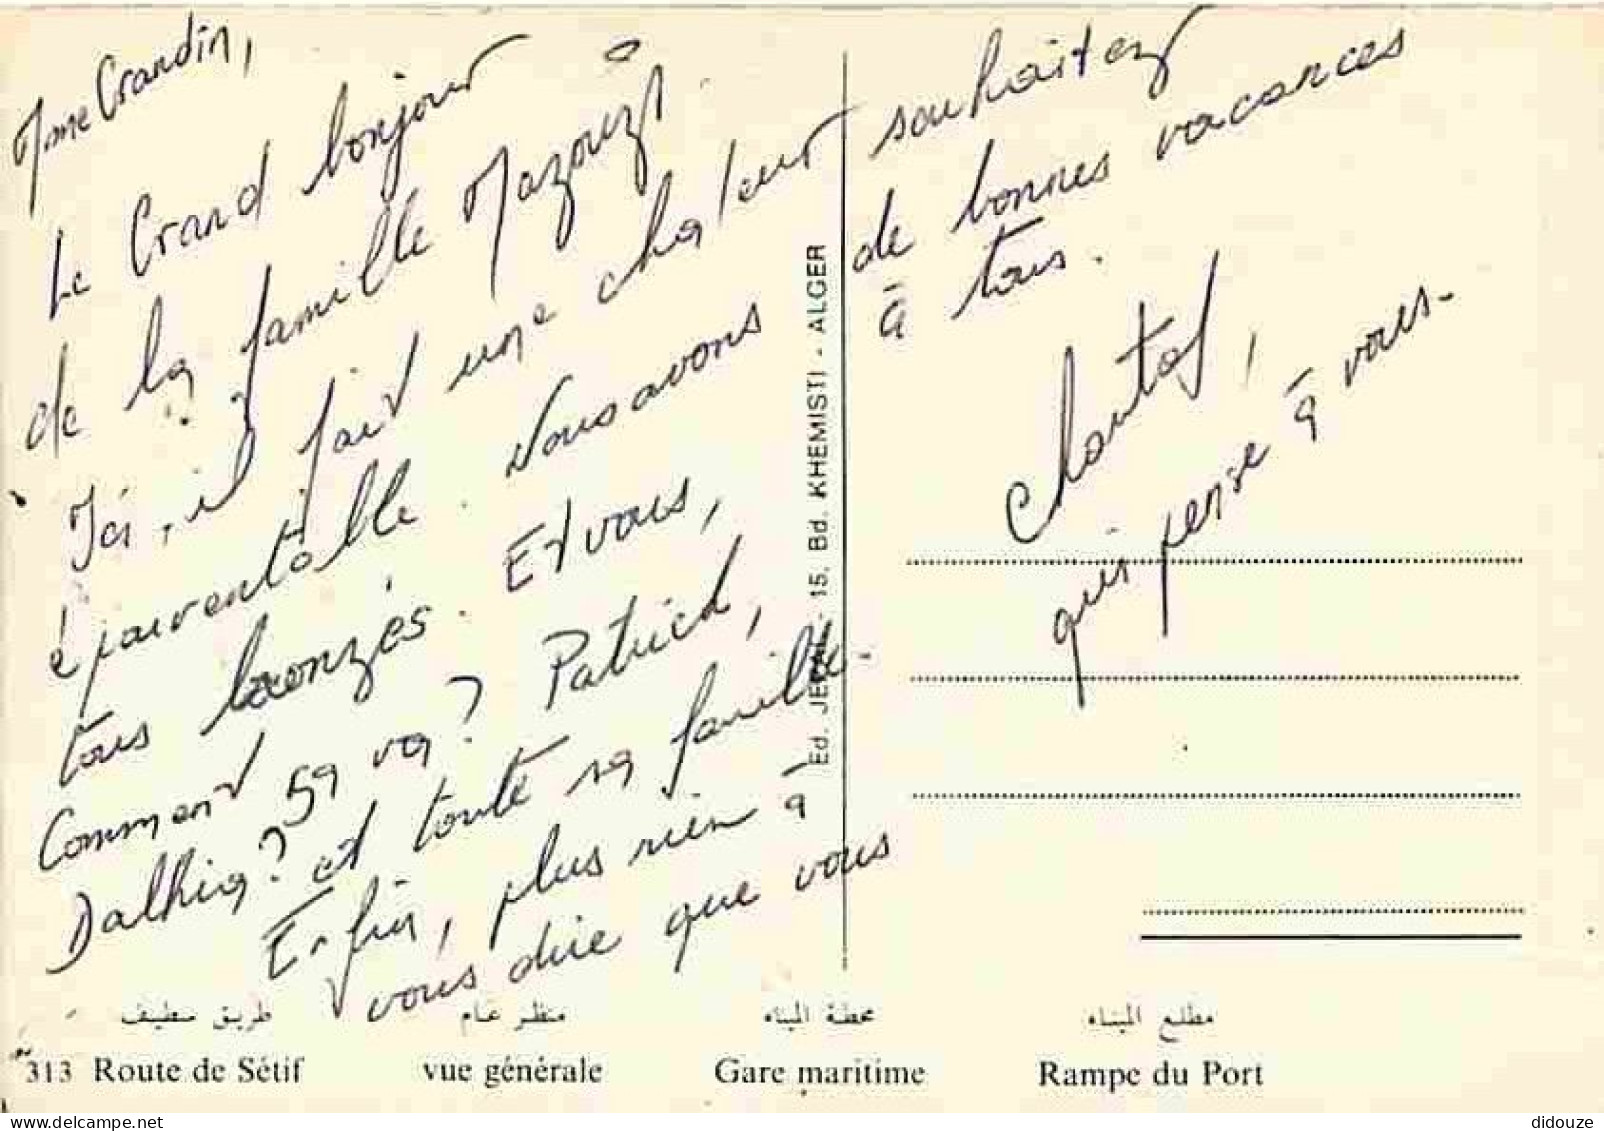 Mme Grandin,
Le Grand bonjour
de la famille Mazouzi.
Ici, il fait une chaleur
épouventable. Nous avons
tous bronzés. Et vous,
Comment ça va? Patrick,
Dalhia? et toute sa famille.
Enfin, plus rien à
vous dire que vous
souhaitez
de bonnes vacances
à tous.
Chantal,
qui pense à vous.
Ed. JEFAL - 15, Bd. KHEMISTI - ALGER
طريق سطيف منظر عام محطة الميناء مطلع الميناء
313 Route de Sétif vue générale Gare maritime Rampe du Port
didouze